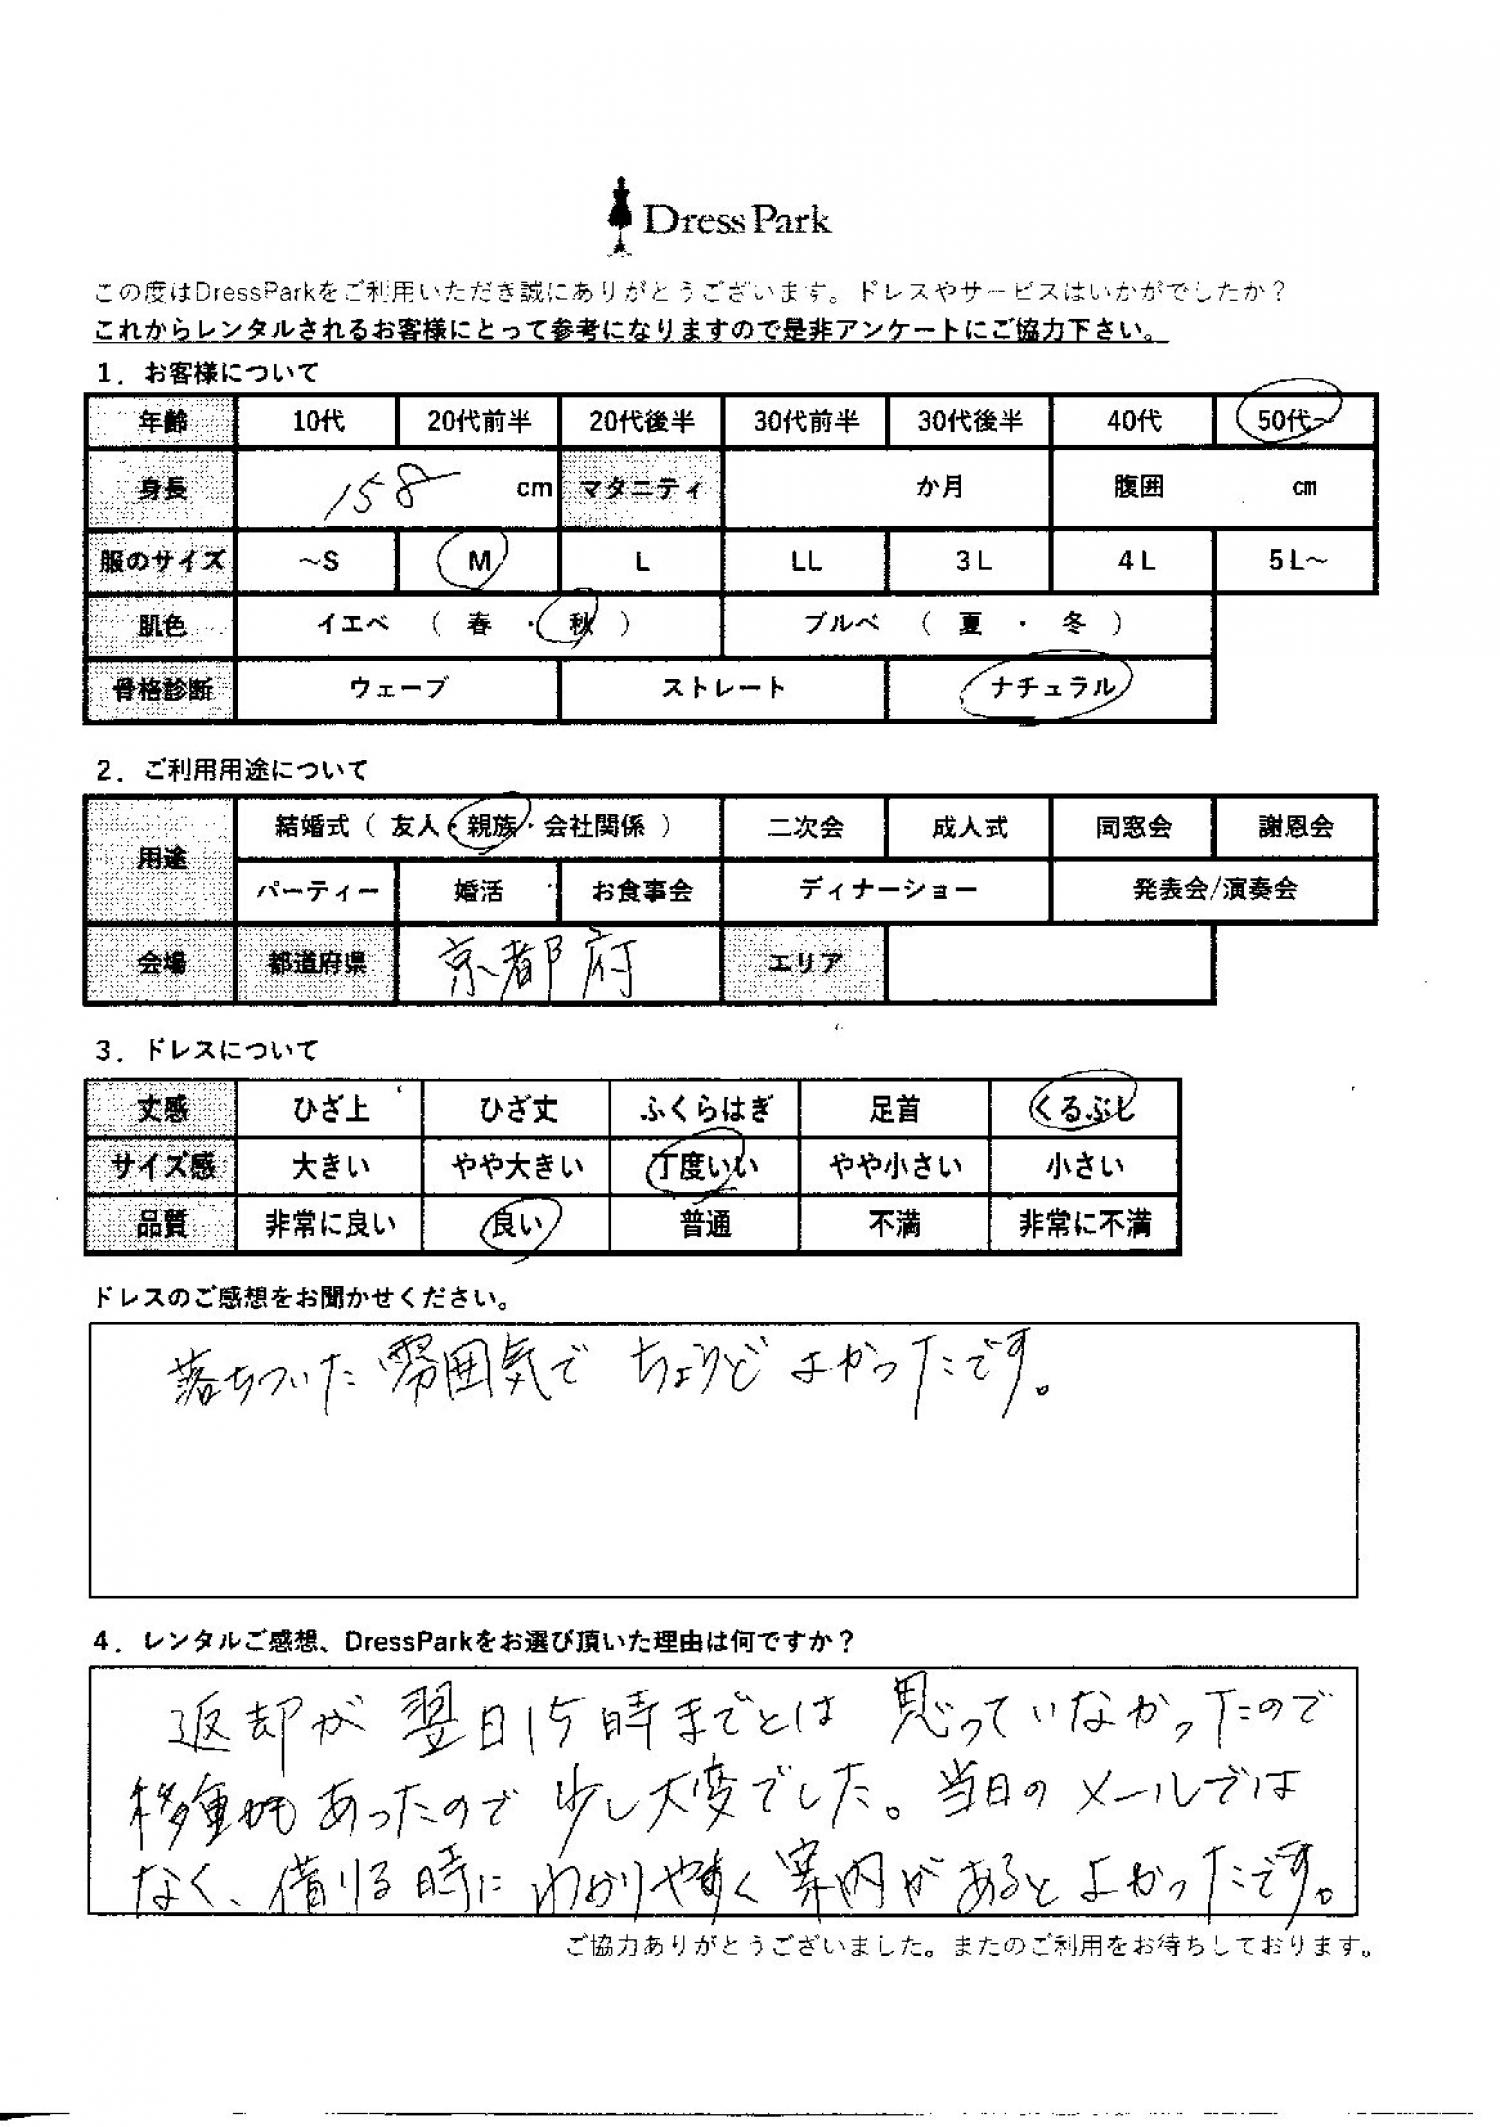 Dress Park
この度はDressParkをご利用いただき誠にありがとうございます。ドレスやサービスはいかがでしたか？
これからレンタルされるお客様にとって参考になりますので是非アンケートにご協力下さい。
1．お客様について
年齢 10代 20代前半 20代後半 30代前半 30代後半 40代 50代～
身長 158 cm マタニティ か月 腹囲 cm
服のサイズ ～S M L LL 3L 4L 5L～
肌色 イエベ （ 春 ・ 秋 ） ブルベ （ 夏 ・ 冬 ）
骨格診断 ウェーブ ストレート ナチュラル
2．ご利用用途について
用途 結婚式（ 友人・親族・会社関係 ） 二次会 成人式 同窓会 謝恩会
パーティー 婚活 お食事会 ディナーショー 発表会/演奏会
会場 都道府県 京都府 エリア
3．ドレスについて
丈感 ひざ上 ひざ丈 ふくらはぎ 足首 くるぶし
サイズ感 大きい やや大きい 丁度いい やや小さい 小さい
品質 非常に良い 良い 普通 不満 非常に不満
ドレスのご感想をお聞かせください。
落ちついた雰囲気で ちょうど よかったです。
4．レンタルご感想、DressParkをお選び頂いた理由は何ですか？
返却が 翌日15時までとは 思っていなかったので
移動もあったので 少し大変でした。当日のメールでは
なく、借りる時に わかりやすく案内があるとよかったです。
ご協力ありがとうございました。またのご利用をお待ちしております。